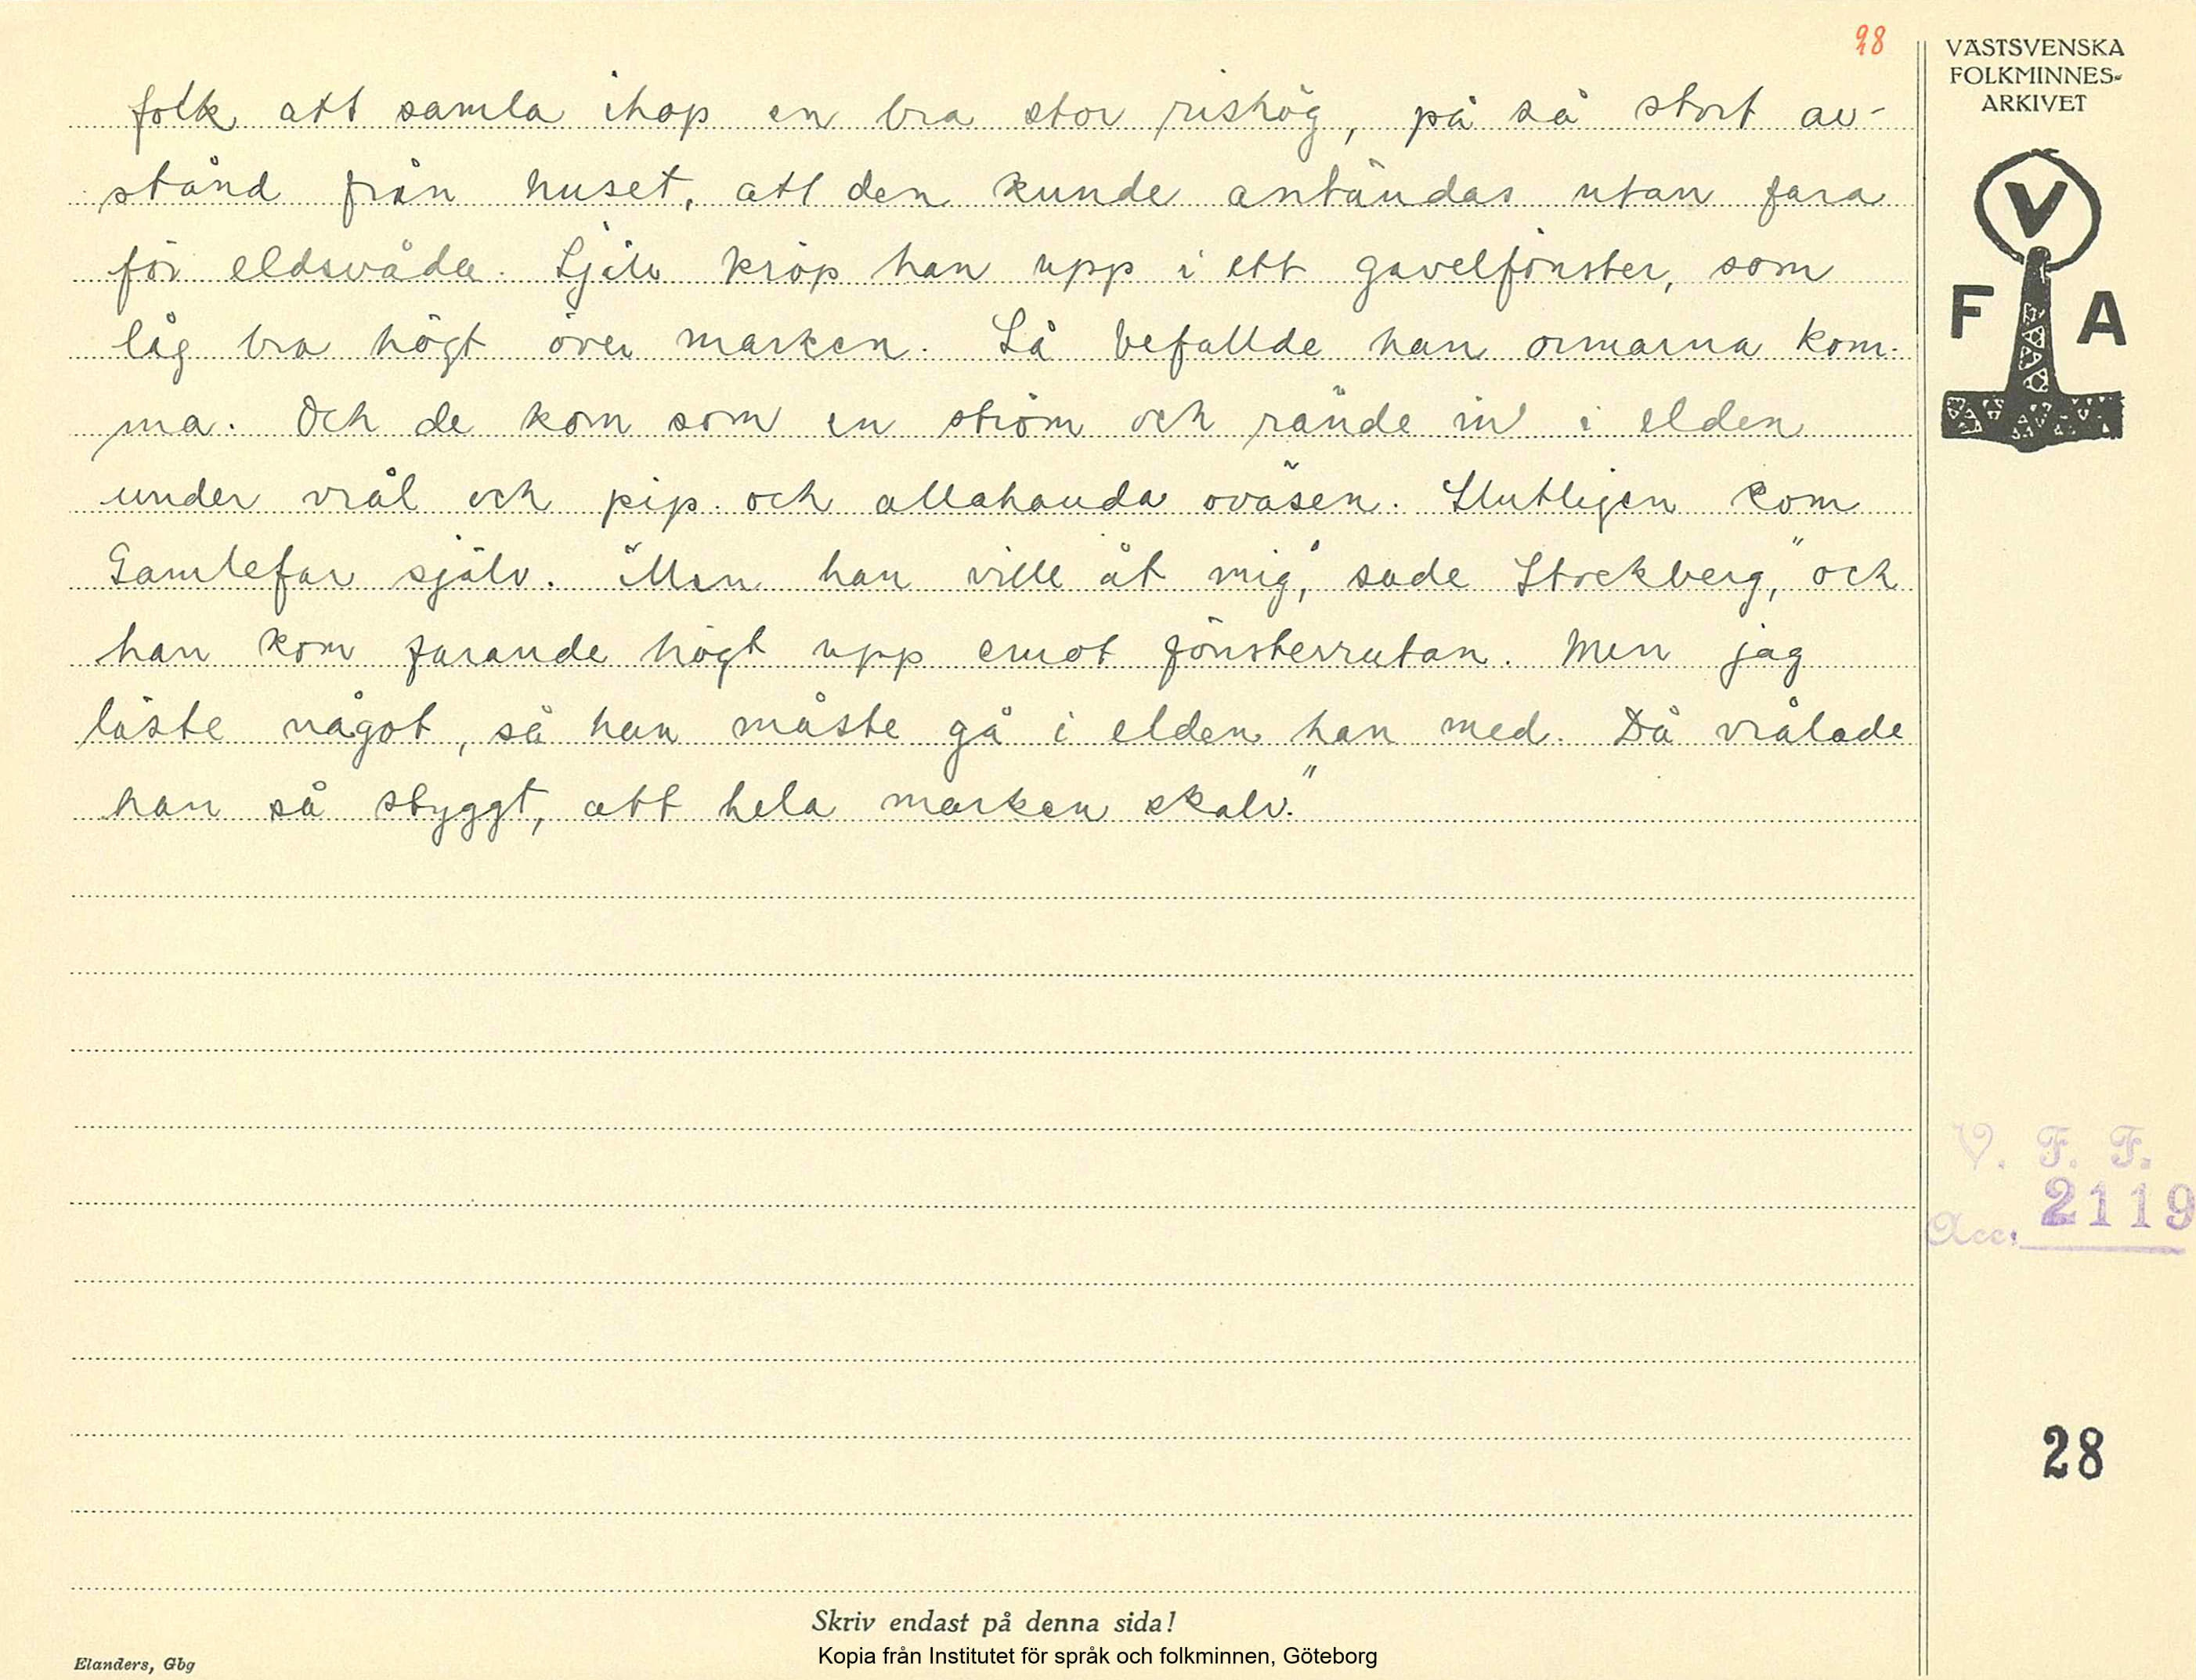 28
VÄSTSVENSKA
FOLKMINNES-
ARKIVET
V
F A
folk att samla ihop en bra stor rishög, på så stort av-
stånd från huset, att den kunde antändas utan fara
för eldsvåda. Själv kröp han upp i ett gavelfönster, som
låg bra högt över marken. Så befallde han ormarna kom-
ma. Och de kom som en ström och rände in i elden
under vrål och pip och allahanda oväsen. Slutligen kom
Gamlefar själv. "Men han ville åt mig," sade Stockberg, "och
han kom farande högt upp emot fönsterrutan. Men jag
läste något, så han måste gå i elden han med. Då vrålade
han så styggt, att hela marken skalv."
V. F. F.
Acc. 2119
28
Skriv endast på denna sida!
Kopia från Institutet för språk och folkminnen, Göteborg
Elanders, Gbg